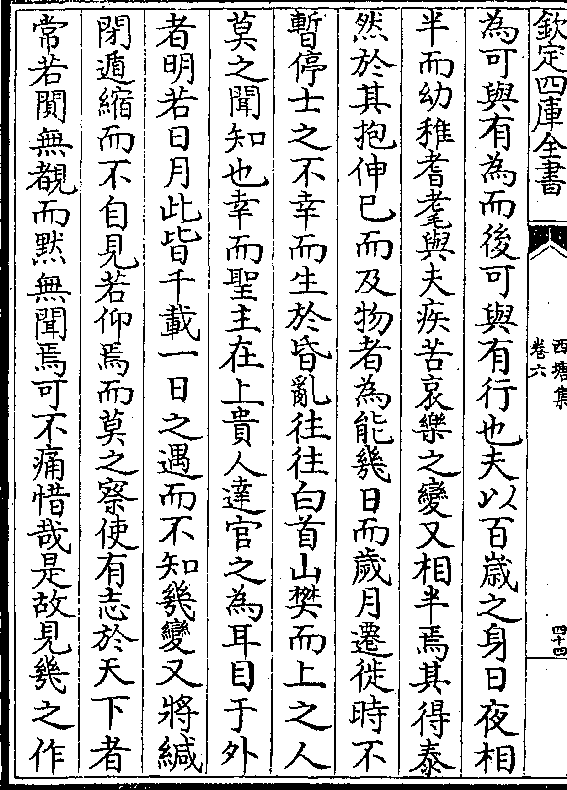 欽定四庫全書
西塘集
卷六
四十四
為可與有為而後可與有行也夫以百歲之身日夜相
半而幼稚耆耄與夫疾苦哀樂之變又相半焉其得泰
然於其抱伸已而及物者為能幾日而歲月遷徙時不
暫停士之不幸而生於昏亂往往白首山樊而上之人
莫之聞知也幸而聖主在上貴人達官之為耳目于外
者明若日月此皆千載一日之遇而不知幾變又將緘
閉遁縮而不自見若仰焉而莫之察使有志於天下者
常若閴無覩而黙無聞焉可不痛惜哉是故見幾之作